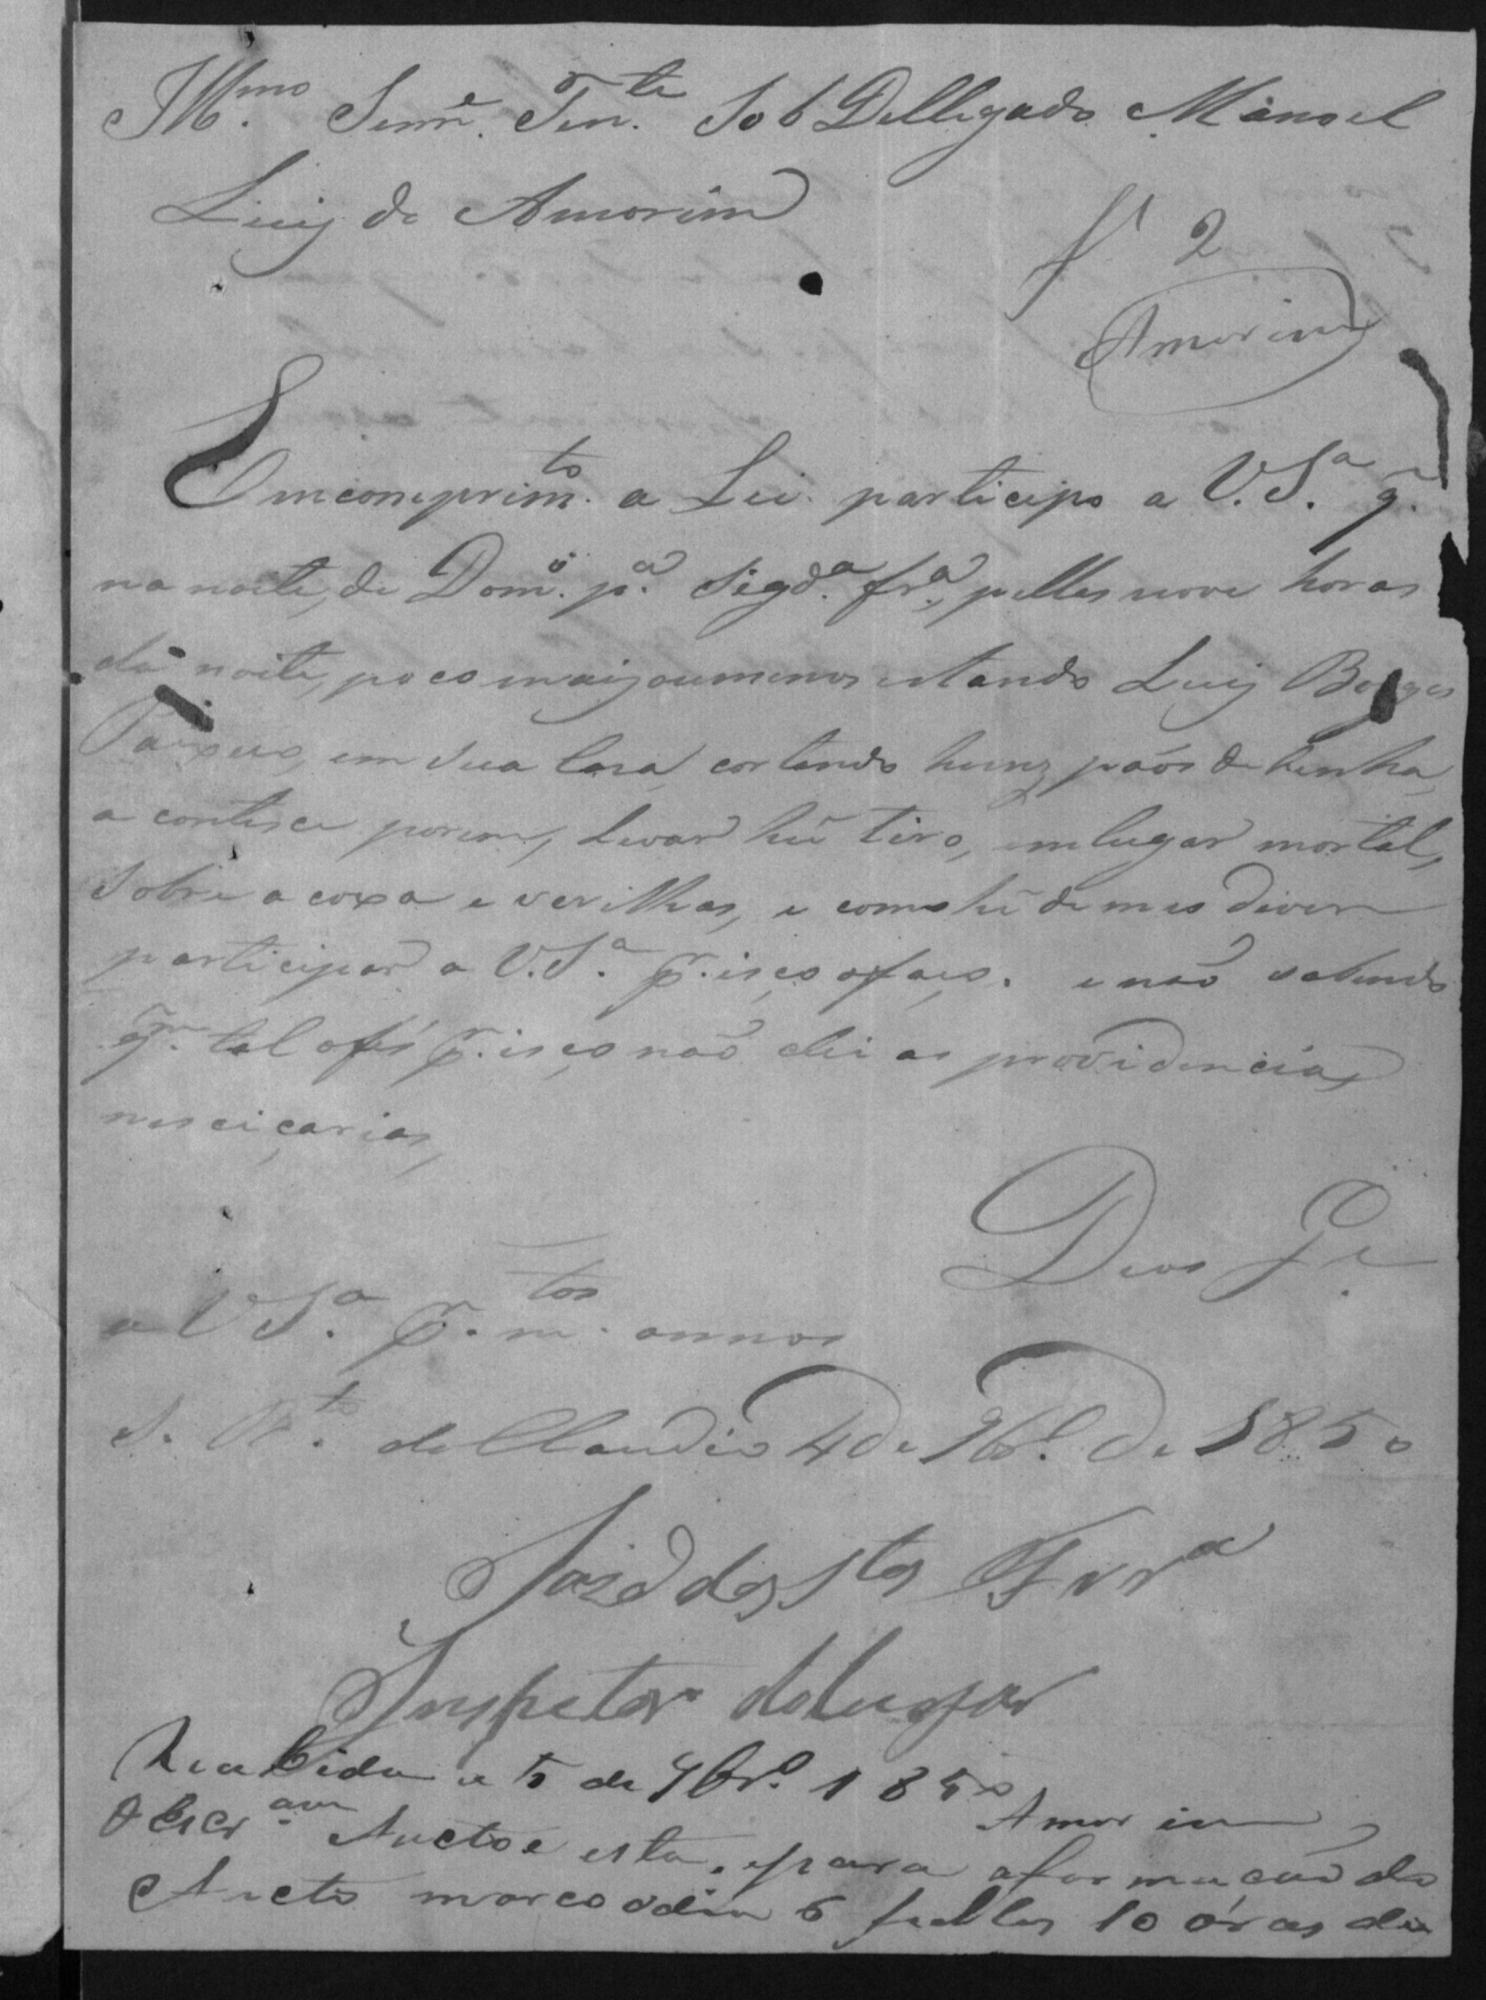 Illmo. Senr. Tente. Sob Dellegado Manoel
Luiz de Amorim
fl 2
Amorim
Em comprimto. a Lei participo a V.Sa. q.
na noite, de Domo. pa. Sigda. fra., pellas nove horas
da noite, poco maiz ou menos estando Luiz Borges
em sua Caza, cortando hunz páos de Lenha,
a contese porem, Levar hũ tiro, em lugar mortal,
Sobre a coxa e verilhas, e como hé de meo diver
participar a V.Sa. pr. isço o faço. e não sabendo
qm. tal o fés pr. isço não dei as providencias
nesciçarias,
Deos Ge.
a V Sa. pr. mtos. annos
do Claudio 4 de 9br.o de 1850
José dos Stos Frra
Inspetor do Lugar
Recebida a 5 de 9br.o 1850
Amorim
O Escram. Auctoe esta, e para a formação do
Aucto marco o dia 6 pellas 10 óras da